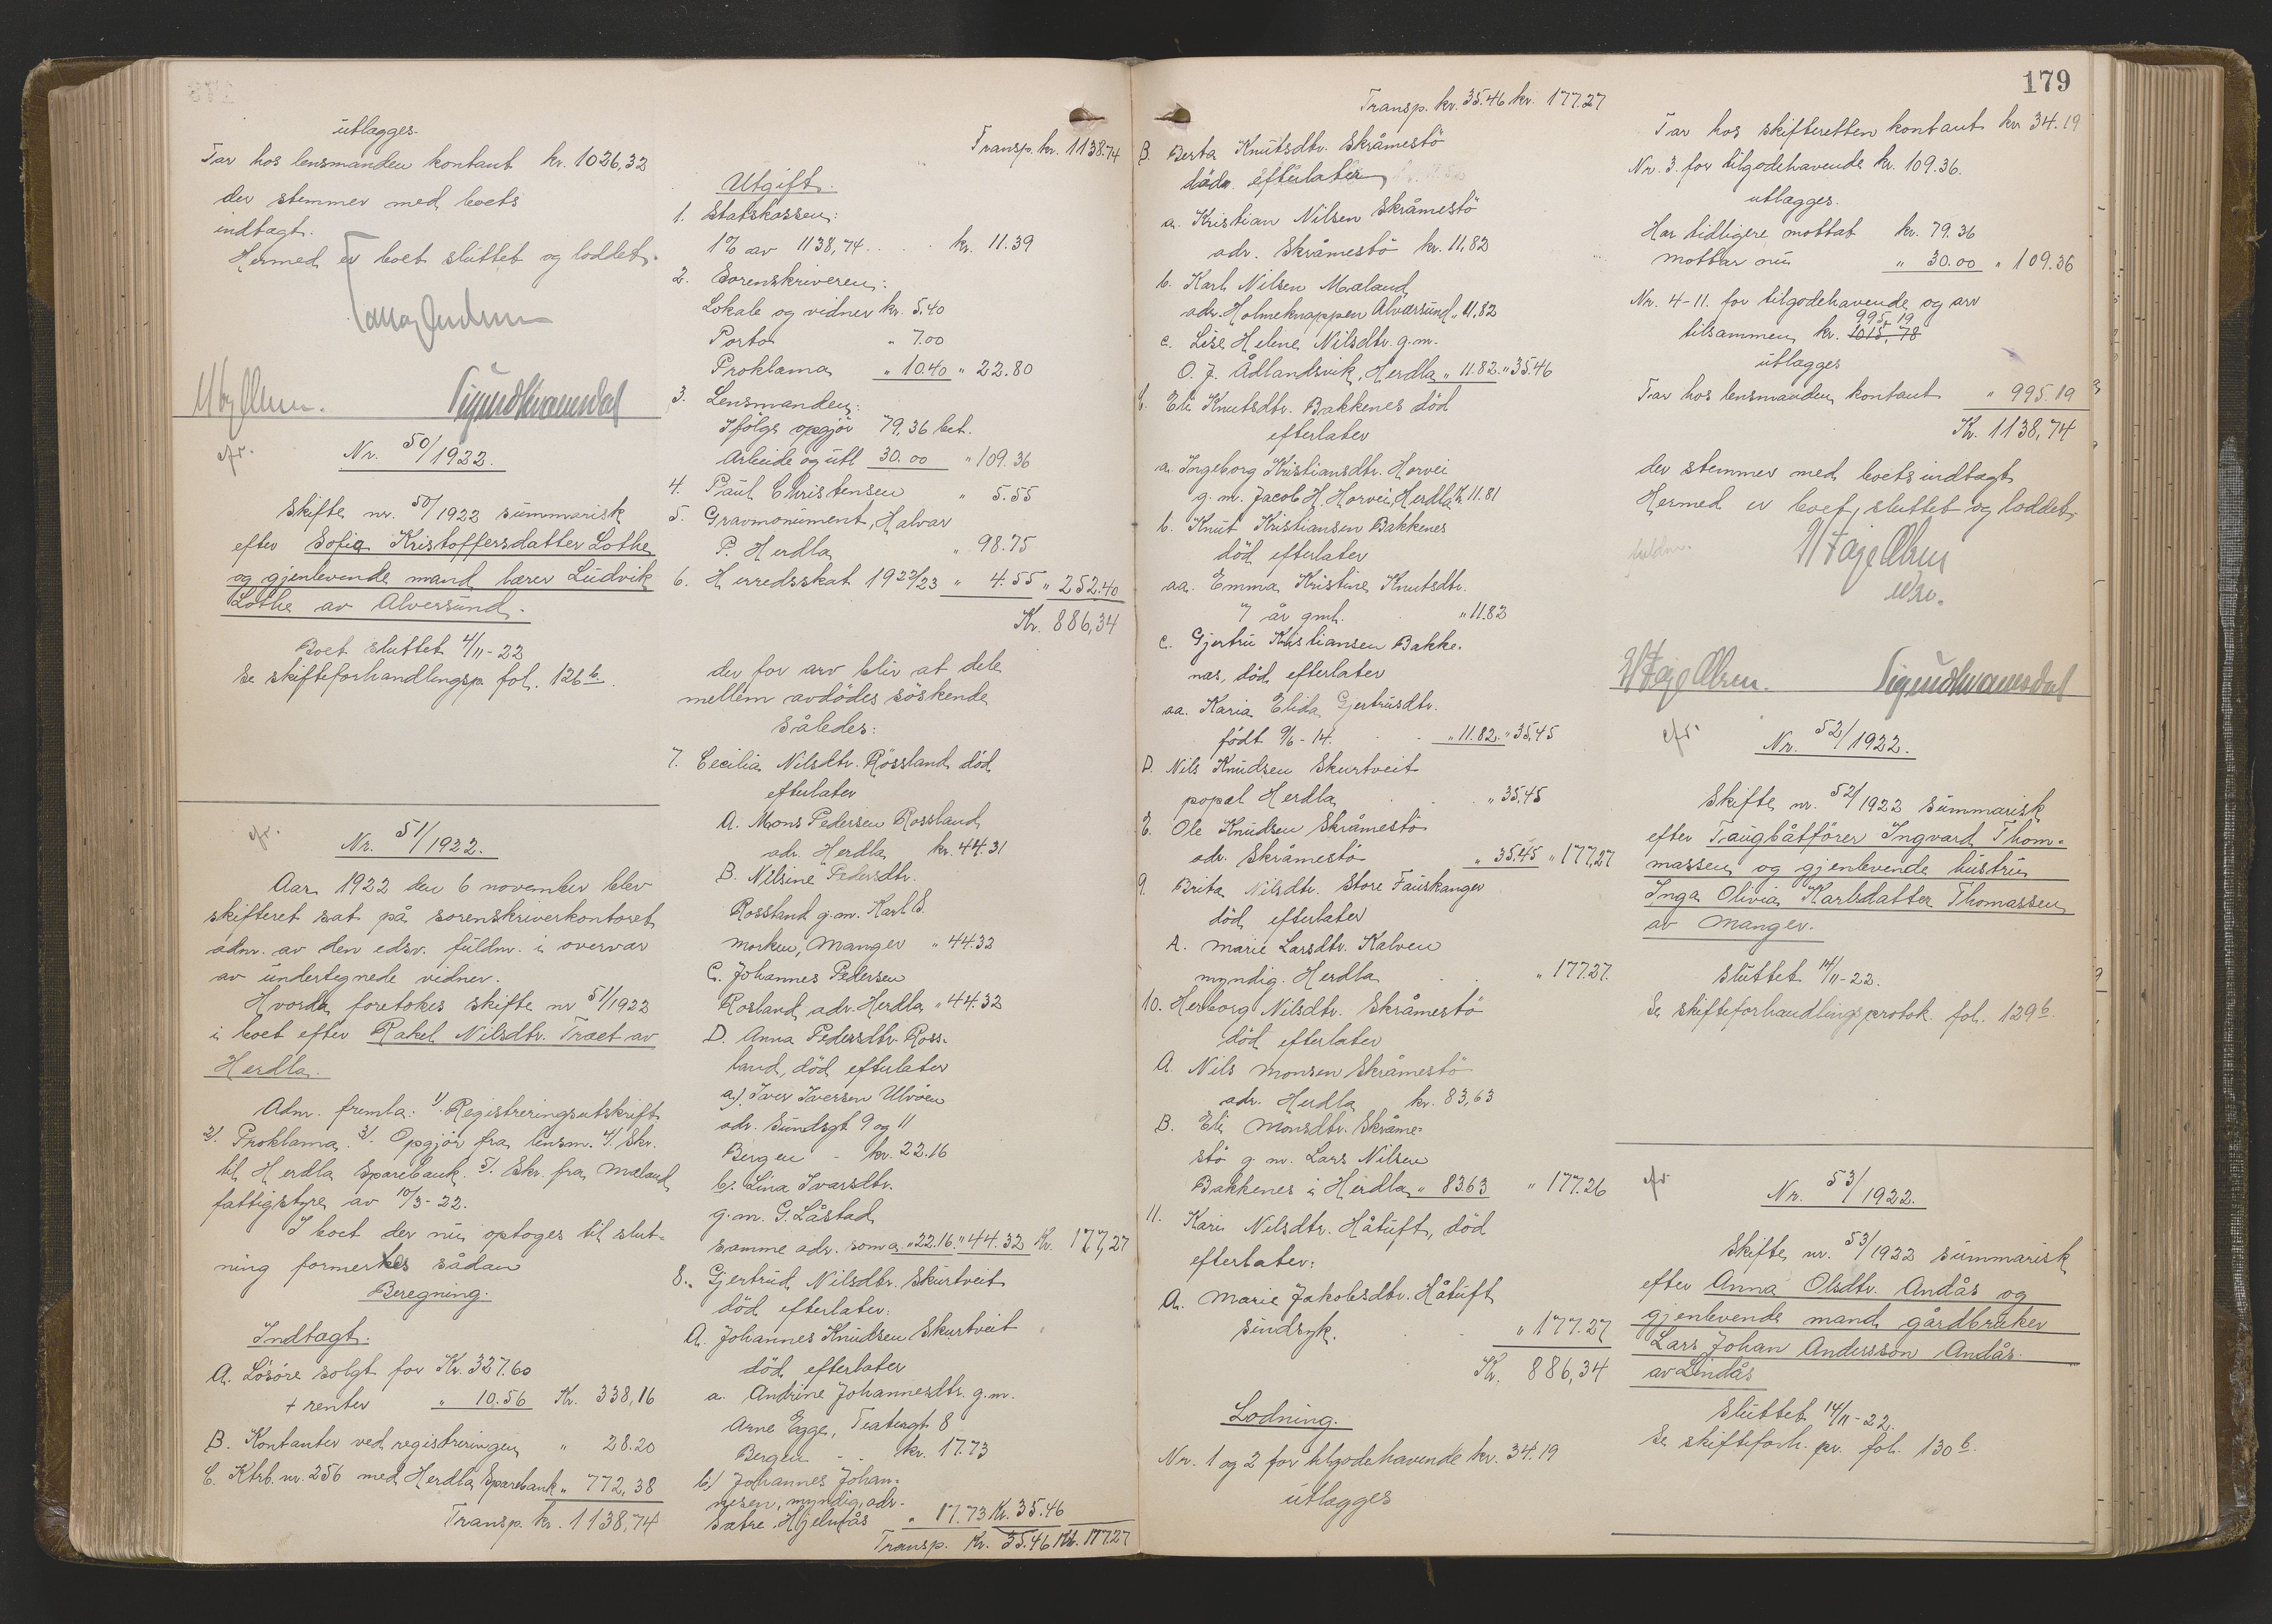 utlægges.
Tar hos lensmanden kontant kr. 1026,32
der stemmer med boets
indtægt.
Hermed er boet sluttet og loddet.
Sigurd Kvamsdal
cfr.
Nr. 50/1922.
Skifte nr. 50/1922 summarisk
efter Sofia Kristoffersdatter Lothe
og gjenlevende mand lærer Ludvik
Lothe av Alversund.
Boet sluttet 4/11-22
Se skifteforhandlingsp. fol. 126 b.
cfr.
Nr. 51/1922.
Aar 1922 den 6 november blev
skifteret sat på sorenskriverkontoret
adm. av den edsv. fuldm. i overvær
av undertegnede vidner.
Hvorda foretokes skifte nr 51/1922
i boet efter Rakel Nilsdtr. Træet av
Herdla.
Adm. fremla: 1/ Registreringsutskrift
2/. Proklama. 3/. Opgjör fra lensm. 4/. Skr.
til Herdla Sparebank. 5/. Skr. fra Mæland
fattigstyre av 10/3-22.
I boet der nu optoges til slut-
ning formerkes sådan
Beregning.
Indtægt.
A. Lösöre solgt for Kr. 327.60
+ renter " 10.56 Kr. 338,16
B. Kontanter ved registreringen " 28.20
C. Ktrb. nr. 256 med Herdla Sparebank " 772,38
Transp. kr. 1138,74
Transp. kr. 1138.74
Utgift.
1. Statskassen:
1% av 1138,74 . . . . kr. 11.39
2. Sorenskriveren:
Lokale og vidner kr. 5.40
Porto " 7.00
Proklama " 10.40 " 22.80
3. Lensmanden:
Ifölge opgjör 79,36 bet.
Arbeide og utl 30.00 " 109.36
4. Paul Christensen " 5.55
5. Gravmonument, Halvar
P. Herdla " 98.75
6. Herredsskat 1922/23 " 4.55 " 252.40
Kr. 886,34
der for arv blir at dele
mellem avdödes söskende
således:
7. Cecilia Nilsdtr. Rössland död
efterlater
A. Mons Pedersen Rossland
adr. Herdla kr. 44.31
B. Nilsine Pedersdtr.
Rossland g.m. Karl S.
Morken, Manger " 44.32
C. Johannes Pedersen
Rosland adr. Herdla " 44.32
D. Anna Pedersdtr. Ross-
land, död efterlater
a). Iver Iversen Ulvöen
adr. Sundsgt. 9 og 11
Bergen - kr. 22.16
b). Lina Ivarsdtr.
g.m. G. Låstad
samme adr. som a. " 22.16. " 44.32 Kr. 177,27
8. Gjertrud Nilsdtr. Skurtveit
död efterlater:
A. Johannes Knudsen Skurtveit
död efterlater
a. Andrine Johannesdtr. g.m.
Arne Egge, Teatergt. 8
Bergen - - kr. 17.73
b) Johannes Johan-
nesen, myndig, adr.
Sætre, Hjelmås " 17.73 Kr. 35.46
Transp. Kr. 35.46 Kr. 177.27
Transp. kr. 35.46 kr. 177.27
B. Berta Knutsdtr. Skråmestö
död. efterlater
a. Kristian Nilsen Skråmestö
adr. Skråmestö kr. 11.82
b. Karl Nilsen Mæland
adr. Holmeknappen Alversund " 11.82
c. Lise Helene Nilsdtr. g.m.
O. J. Ådlandsvik, Herdla " 11.82 " 35.46
C. Eli Knutsdtr. Bakkenes död
efterlater
a. Ingeborg Kristiansdtr. Horvei
g.m. Jacob H. Horvei, Herdla Kr 11.81
b. Knut Kristiansen Bakkenes
död efterlater
aa. Emma Kristine Knutsdtr.
7 år gml. " 11.82
c. Gjertru Kristiansen Bakke-
nes, död efterlater
aa. Karia Elida Gjertrusdtr.
födt 9/6-14. " 11.82 " 35.45
D. Nils Knudsen Skurtveit
popal Herdla " 35.45
E. Ole Knudsen Skråmestö
adr. Skråmestö " 35.45 " 177,27
9. Brita Nilsdtr. Store Fauskanger
död efterlater
A. Marie Larsdtr. Kalven
myndig. Herdla " 177.27.
10. Herborg Nilsdtr. Skråmestö
död efterlater
A. Nils Monsen Skråmestö
adr. Herdla kr. 83,63
B. Eli Monsdtr. Skråme-
stö g.m. Lars Nilsen
Bakkenes i Herdla " 83.63 " 177.26
11. Kari Nilsdtr. Håtuft, död
efterlater:
A. Marie Jakobsdtr. Håtuft
sindsyk. " 177.27
Kr. 886,34
Lodning.
Nr. 1 og 2 for tilgodehavende kr. 34.19
utlægges
179
Tar hos skifteretten kontant kr 34.19
Nr. 3 for tilgodehavende kr. 109.36.
utlægges.
Har tidligere mottat kr. 79.36
mottar nu " 30.00 " 109.36
Nr. 4-11. for tilgodehavende og arv
995,19
tilsammen kr. 1015,78
utlægges
Tar hos lensmanden kontant " 995.19
Kr. 1138,74
der stemmer med boets indtægt
Hermed er boet sluttet og loddet.
Sigurd Kvamsdal
cfr.
Nr. 52/1922.
Skifte nr. 52/1922 summarisk
efter Taugbåtförer Ingvard Thom-
massen og gjenlevende hustru
Inga Olivia Karlsdatter Thomassen
av Manger.
Sluttet 14/11-22.
Se skifteforhandlingsprotok. fol. 129 b.
cfr
Nr. 53/1922.
Skifte nr. 53/1922 summarisk
efter Anna Olsdtr. Andås og
gjenlevende mand gårdbruker
Lars Johan Andersson Andås.
av Lindås
Sluttet 14/11-22.
Se skifteforh. pr. fol. 130 b.